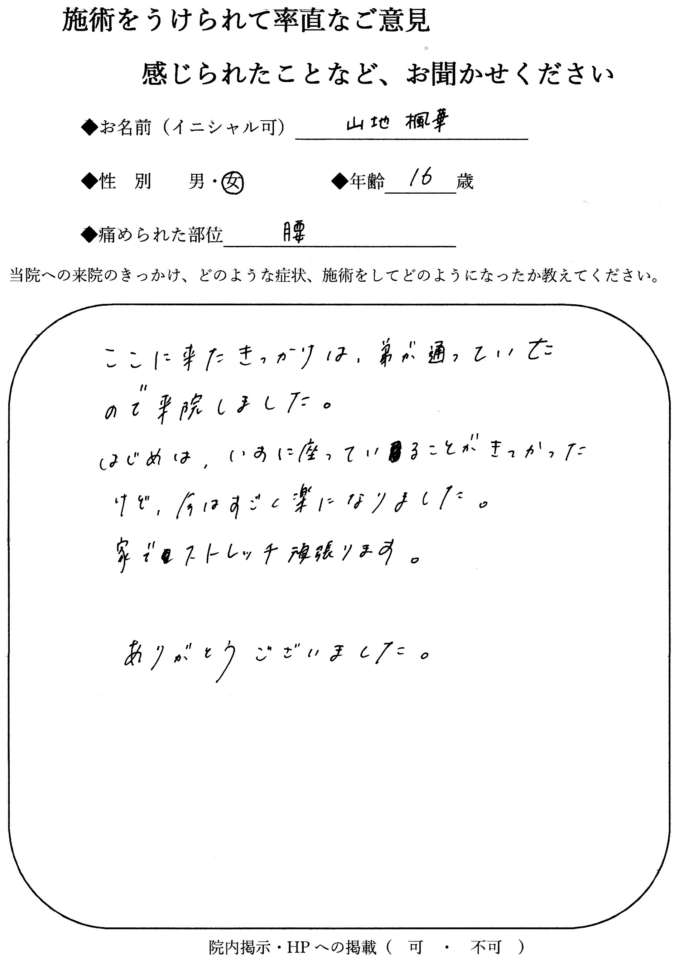 施術をうけられて率直なご意見
感じられたことなど、お聞かせください
◆お名前（イニシャル可） 山地 楓華
◆性 別 男・女 ◆年齢 16 歳
◆痛められた部位 腰
当院への来院のきっかけ、どのような症状、施術をしてどのようになったか教えてください。
ここに来たきっかけは、弟が通っていた
ので来院しました。
はじめは、いすに座っていることがきつかった
けど、今はすごく楽になりました。
家でストレッチ頑張ります。
ありがとうございました。
院内掲示・HPへの掲載（ 可 ・ 不可 ）